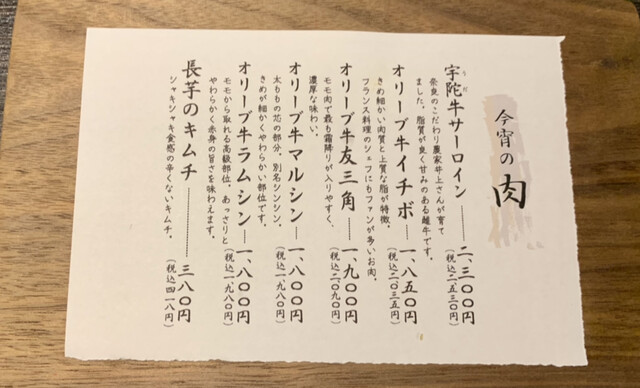 今宵の肉
宇陀牛サーロイン 二、三〇〇円
うだ
奈良のこだわり農家井上さんが育て
ました。脂質が良く甘みのある雌牛です。
(税込二、五三〇円)
オリーブ牛イチボ 一、八五〇円
きめ細かい肉質と上質な脂が特徴。
(税込二、〇三五円)
フランス料理のシェフにもファンが多いお肉。
オリーブ牛友三角 一、九〇〇円
モモ肉で最も霜降りが入りやすく、
(税込二、〇九〇円)
濃厚な味わい。
オリーブ牛マルシン 一、八〇〇円
太ももの芯の部分。別名シンシン。
(税込一、九八〇円)
きめが細かくやわらかい部位です。
オリーブ牛ラムシン 一、八〇〇円
モモから取れる高級部位。あっさりと
(税込一、九八〇円)
やわらかく赤身の旨さを味わえます。
長芋のキムチ 三八〇円
シャキシャキ食感の辛くないキムチ。
(税込四一八円)